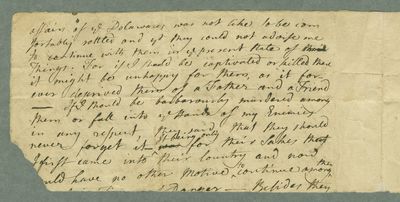 affairs of ye Delawares was not like to be com
fortably settled and yt they could not advise me
to continue with them in ye present State of
Things. For if I should be captivated or killed there
it might be unhappy for them, as it for
ever deprived them of a Father and a Friend
— If I should be barbarously murdered among
them or fall into ye Hands of my Enemies
in any respect, they said that they should
never forget it — it being only for their Sakes that
I first came into their Country and now
could have no other Motive to continue among
Danger — Besides they